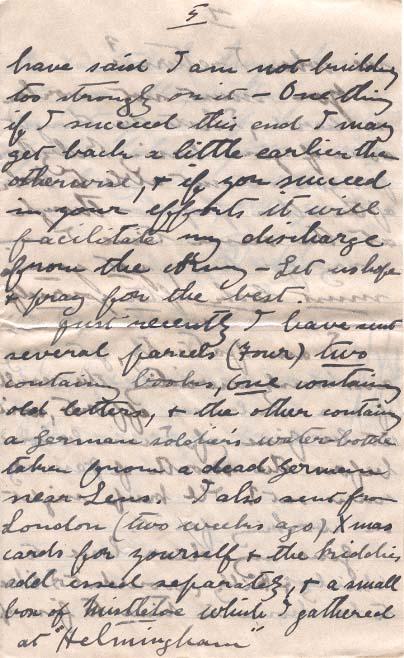 5
have said I am not building
too strongly on it - One thing
if I succeed this end I may
get back a little earlier than
otherwise, & if you succeed
in your efforts it will
facilitate my discharge
from the Army - Let us hope
& pray for the best.
Just recently I have sent
several parcels (Four) two
containing books, one containing
old letters, & the other containing
a German soldier's water bottle
taken from a dead German
near Lens. I also sent from
London (two weeks ago) Xmas
cards for yourself & the kiddies
addressed separately, & a small
box of Mistletoe which I gathered
at "Helmingham"